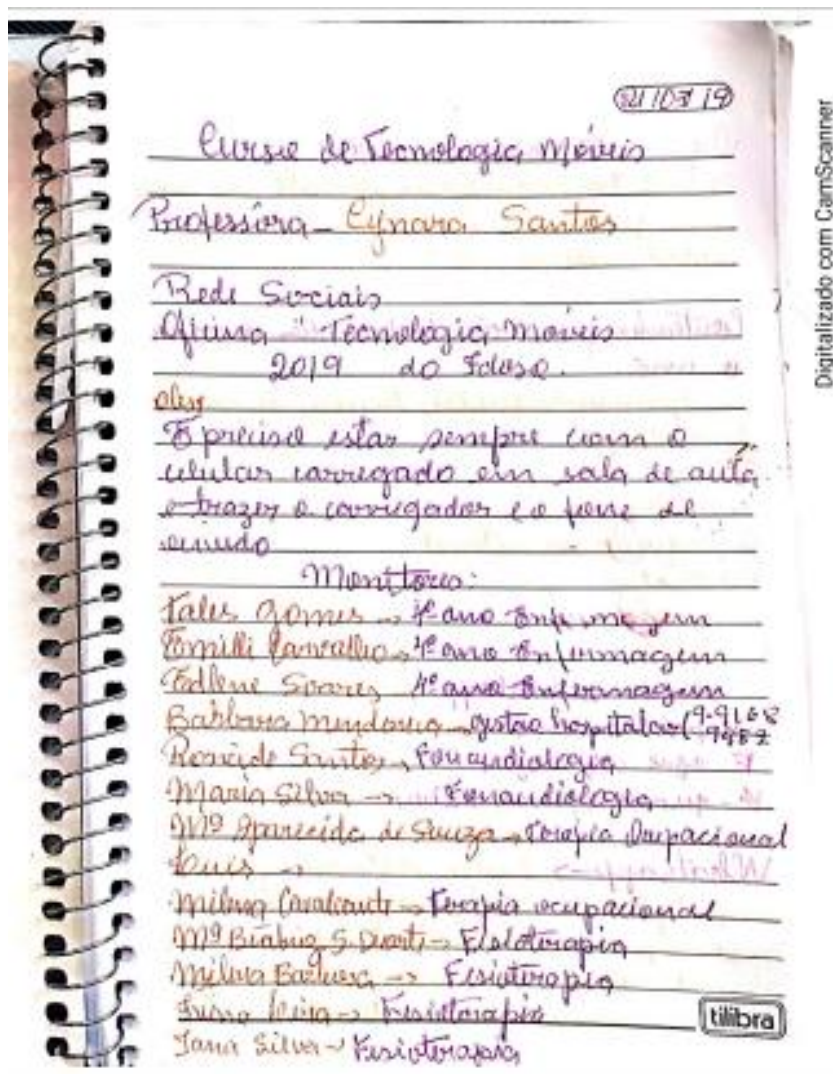 21 03 19
Curso de Tecnologia Móveis
Professôra - Cynara Santos
Rede Sociais
Oficina Tecnologia moveis
2019 do Idoso.
É preciso estar sempre com o
celular carregado em sala de aula
e trazer o carregador e o fone de
ouvido
Monitores:
Tales Gomes → 4º ano Enfermagem
Emilli Carvalho → 4º ano Enfermagem
Edlene Soares 4º ano Enfermagem
Bárbara Mendonça → gestão hospitalar (9-9168
9982
Santos → Fonaudiologia
Maria Silva → Fonaudiologia
Mª Aparecida de Souza → Terapia Ocupacional
Luis →
Milena Cavalcante → Terapia ocupacional
Mª Beatriz S. Duarte → Fisioterapia
Milena Barbosa → Fesioterapia
→ Fesioterapia
Jana Silva → Fesioterapia
tilibra
Digitalizado com CamScanner